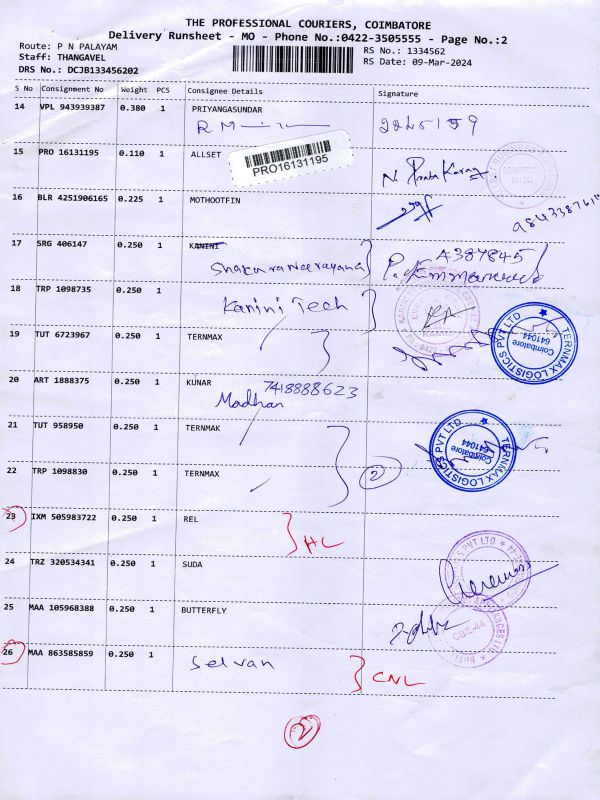 THE PROFESSIONAL COURIERS, COIMBATORE
Delivery Runsheet - MO - Phone No.:0422-3505555 - Page No.:2
Route: P N PALAYAM
RS No.: 1334562
Staff: THANGAVEL
RS Date: 09-Mar-2024
DRS No.: DCJB133456202
S No Consignment No Weight PCS Consignee Details Signature
14 VPL 943939387 0.380 1 PRIYANGASUNDAR
15 PRO 16131195 0.110 1 ALLSET
PRO16131195
16 BLR 4251906165 0.225 1 MOTHOOTFIN
17 SRG 406147 0.250 1 KANINI
A387845
18 TRP 1098735 0.250 1
Kanini Tech
19 TUT 6723967 0.250 1 TERNMAX
TERNMAX LOGISTICS PVT LTD ★
Coimbatore
641044
20 ART 1888375 1 0.250 1 KUNAR
7418888623
Madhan
21 TUT 958950 0.250 1 TERNMAK
TERNMAX LOGISTICS PVT LTD ★
Coimbatore
641044
22 TRP 1098830 0.250 1 TERNMAX
2
23 IXM 505983722 0.250 1 REL
HL
24 TRZ 320534341 0.250 1 SUDA
25 MAA 105968388 0.250 1 BUTTERFLY
CBE-44
26 MAA 863585859 0.250 1 Selvan
CNL
2